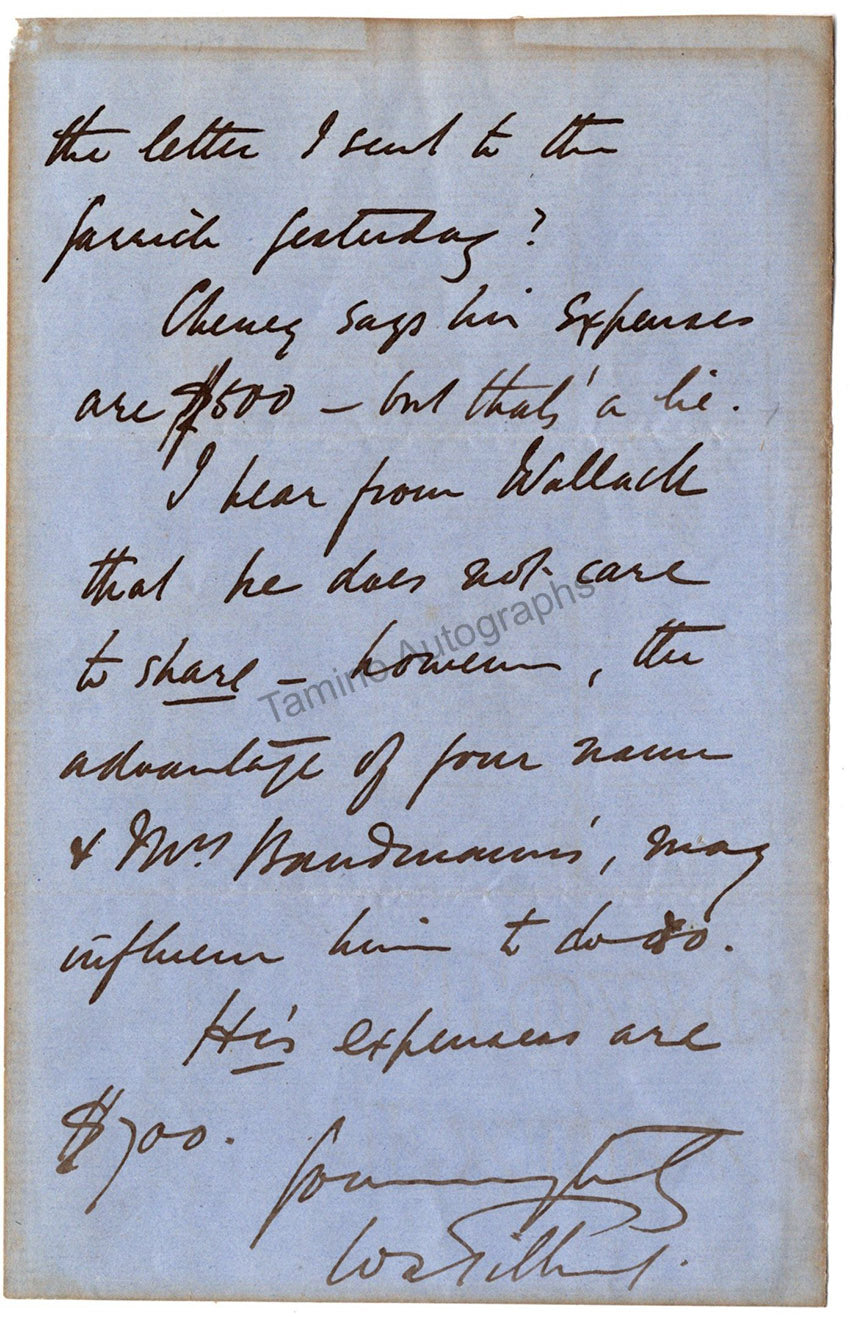 the letter I sent to the
Garrick yesterday?
Cheney says his expenses
are $500 – but that's a lie.
I hear from Wallack
that he does not care
to share – however, the
advantage of your name
& Mrs Bandmann's, may
influence him to do so.
His expenses are
$700.
Yours very truly
W S Gilbert.
Tamino Autographs